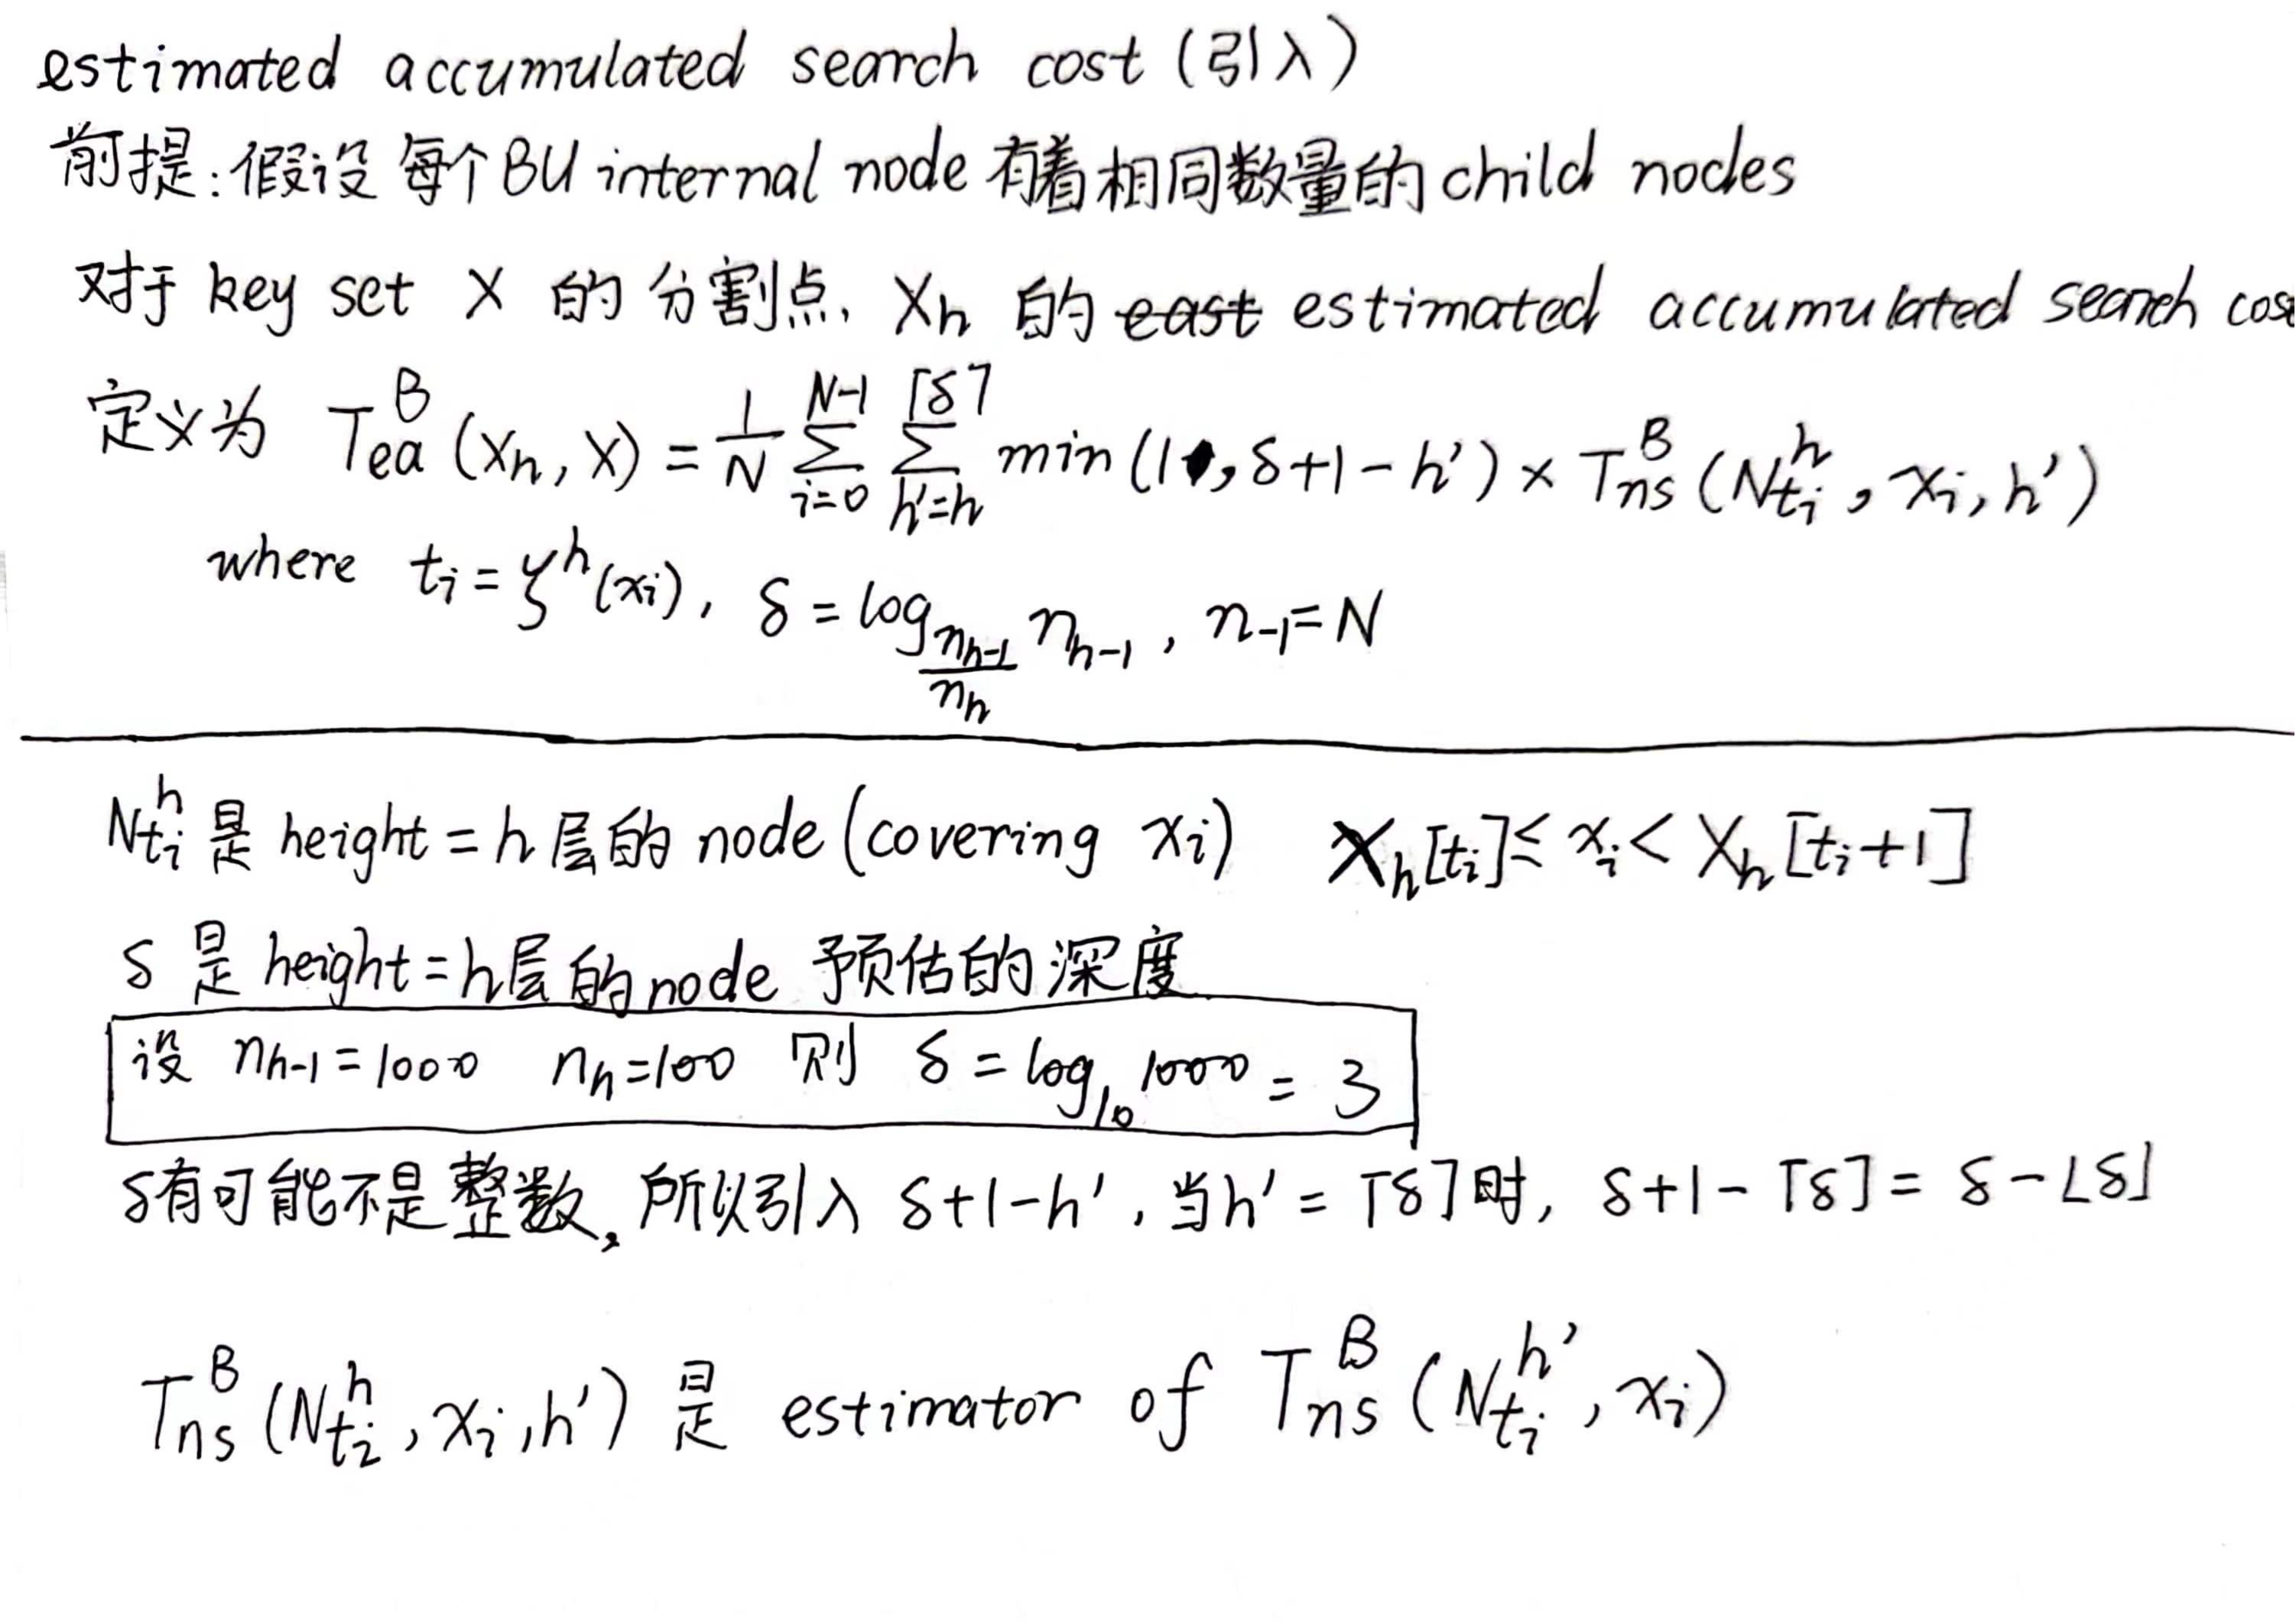 estimated accumulated search cost (引入)
前提:假设 每个BU internal node 有着相同数量的 child nodes
对于 key set X 的分割点, Xh 的 ~~east~~ estimated accumulated search cos
定义为 T_{ea}^{B}(X_h, X) = \frac{1}{N} \sum_{i=0}^{N-1} \sum_{h'=h}^{⌈δ⌉} min(1, δ+1-h') × T_{ns}^{B}(N_{t_i}^{h}, x_i, h')
where t_i = ζ^h(x_i), δ = log_{\frac{n_{h-1}}{n_h}} n_{h-1}, n_{-1} = N
N_{t_i}^{h} 是 height = h 层的 node (covering x_i) X_h[t_i] ≤ x_i < X_h[t_i+1]
δ 是 height = h层的 node 预估的深度
设 n_{h-1} = 1000 n_h = 100 则 δ = log_{10} 1000 = 3
δ有可能不是整数, 所以引入 δ+1-h', 当h' = ⌈δ⌉时, δ+1-⌈δ⌉ = δ-⌊δ⌋
T_{ns}^{B}(N_{t_i}^{h}, x_i, h') 是 estimator of T_{ns}^{B}(N_{t_i}^{h'}, x_i)